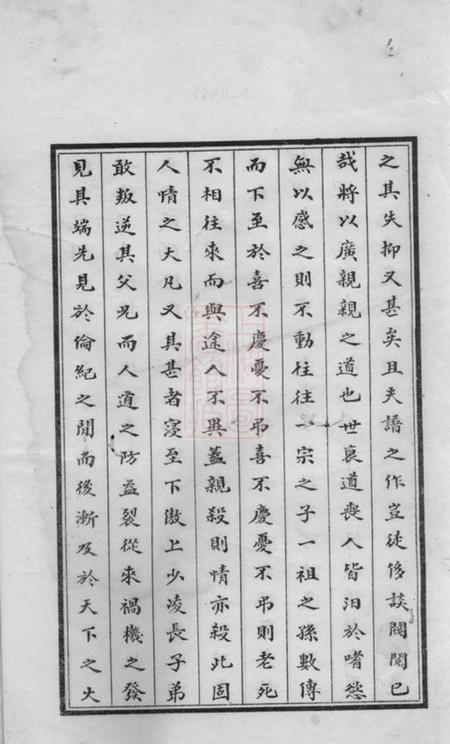 之其失抑又甚矣且夫譜之作豈徒侈談閥閱已
哉將以廣親親之道也世衰道喪人皆汩於嗜慾
無以感之則不動往往一宗之子一祖之孫數傳
而下至於喜不慶憂不吊喜不慶憂不吊則老死
不相往來而與途人不異蓋親殺則情亦殺此固
人情之大凡又其甚者寖至下傲上少凌長子弟
敢叛逆其父兄而人道之防益裂從來禍機之發
見其端先見於倫紀之閒而後漸及於天下之大